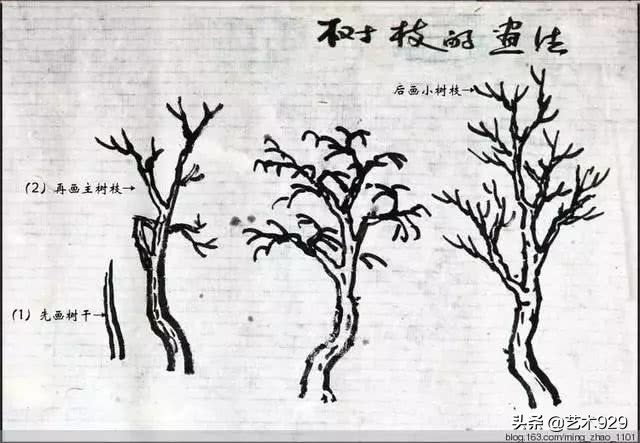 树枝的画法
后画小树枝
(2) 再画主树枝
(1) 先画树干
头条@艺术929
blog.163.com/ming_zhao_1101